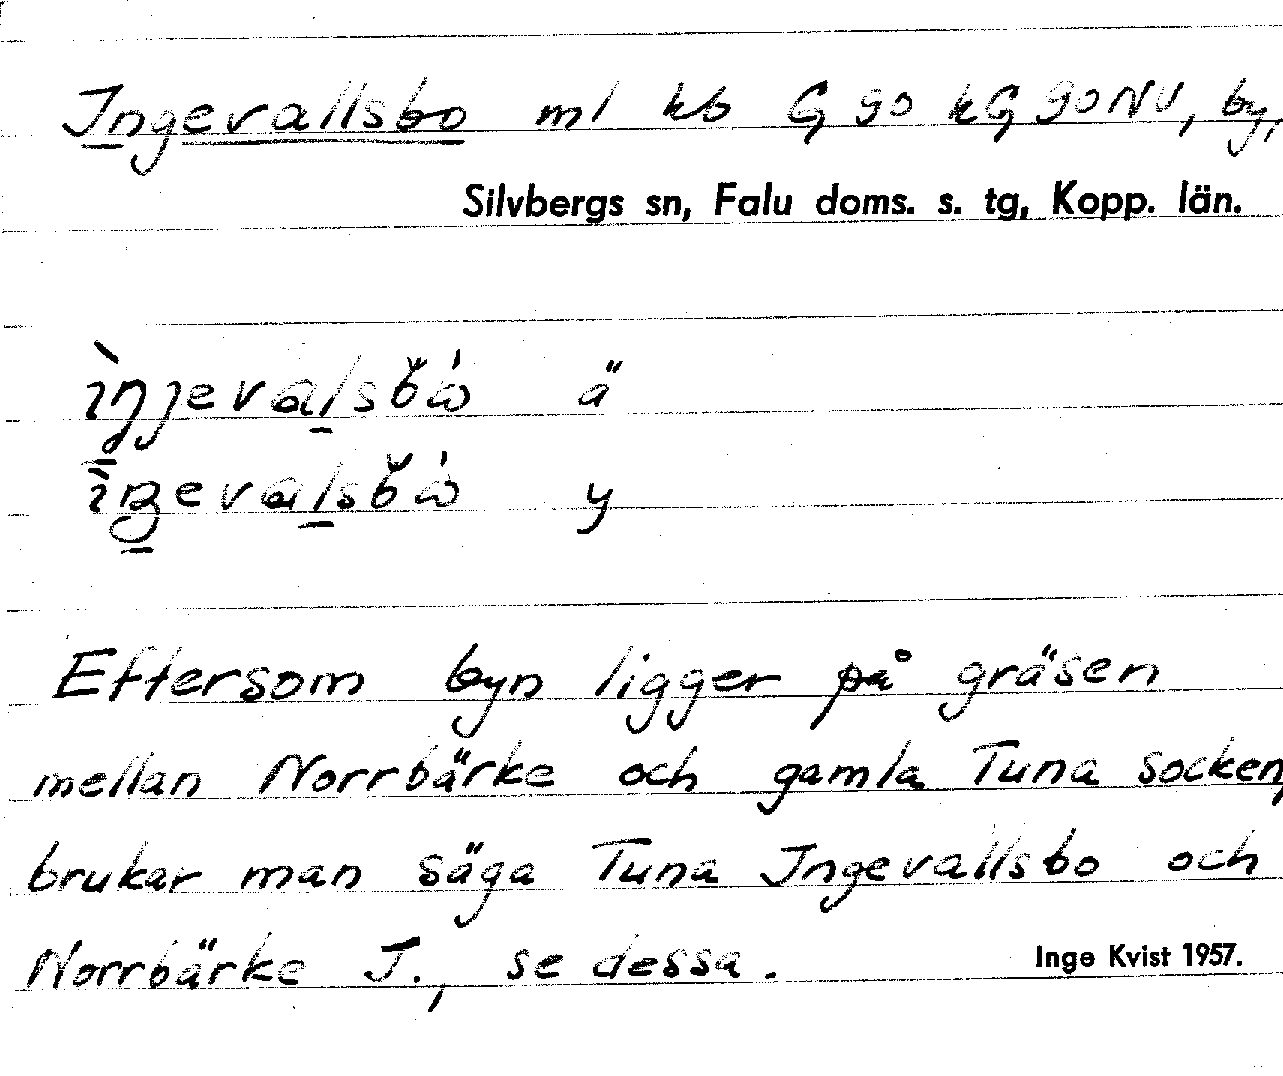 Ingevallsbo ml kb G 90 kG 90NV, by,
Silvbergs sn, Falu doms. s. tg, Kopp. län.
ä
y
Eftersom byn ligger på gräsen
mellan Norrbärke och gamla Tuna socken,
brukar man säga Tuna Ingevallsbo och
Norrbärke I., se dessa.
Inge Kvist 1957.